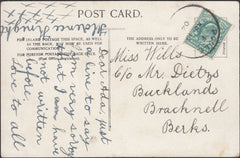 POST CARD.
FOR INLAND POSTAGE THIS SPACE, AS WELL
AS THE BACK, MAY NOW BE USED FOR
COMMUNICATION.
THE ADDRESS ONLY TO BE
WRITTEN HERE.
Dear Ada, just
a line to say
am very sorry
that I have
not wrote
before
love to all
Miss Wills
c/o Mr. Dietys
Bucklands
Bracknell
Berks.